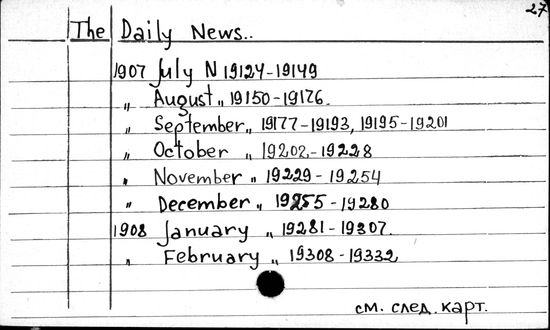 27
The Daily News..
1907 July N 19124-19149
„ August „ 19150-19176.
„ September „ 19177-19193, 19195-19201
„ October „ 19202-19228
„ November „ 19229-19254
„ December „ 19255-19280
1908 January „ 19281-19307.
„ February „ 19308-19332
см. след. карт.